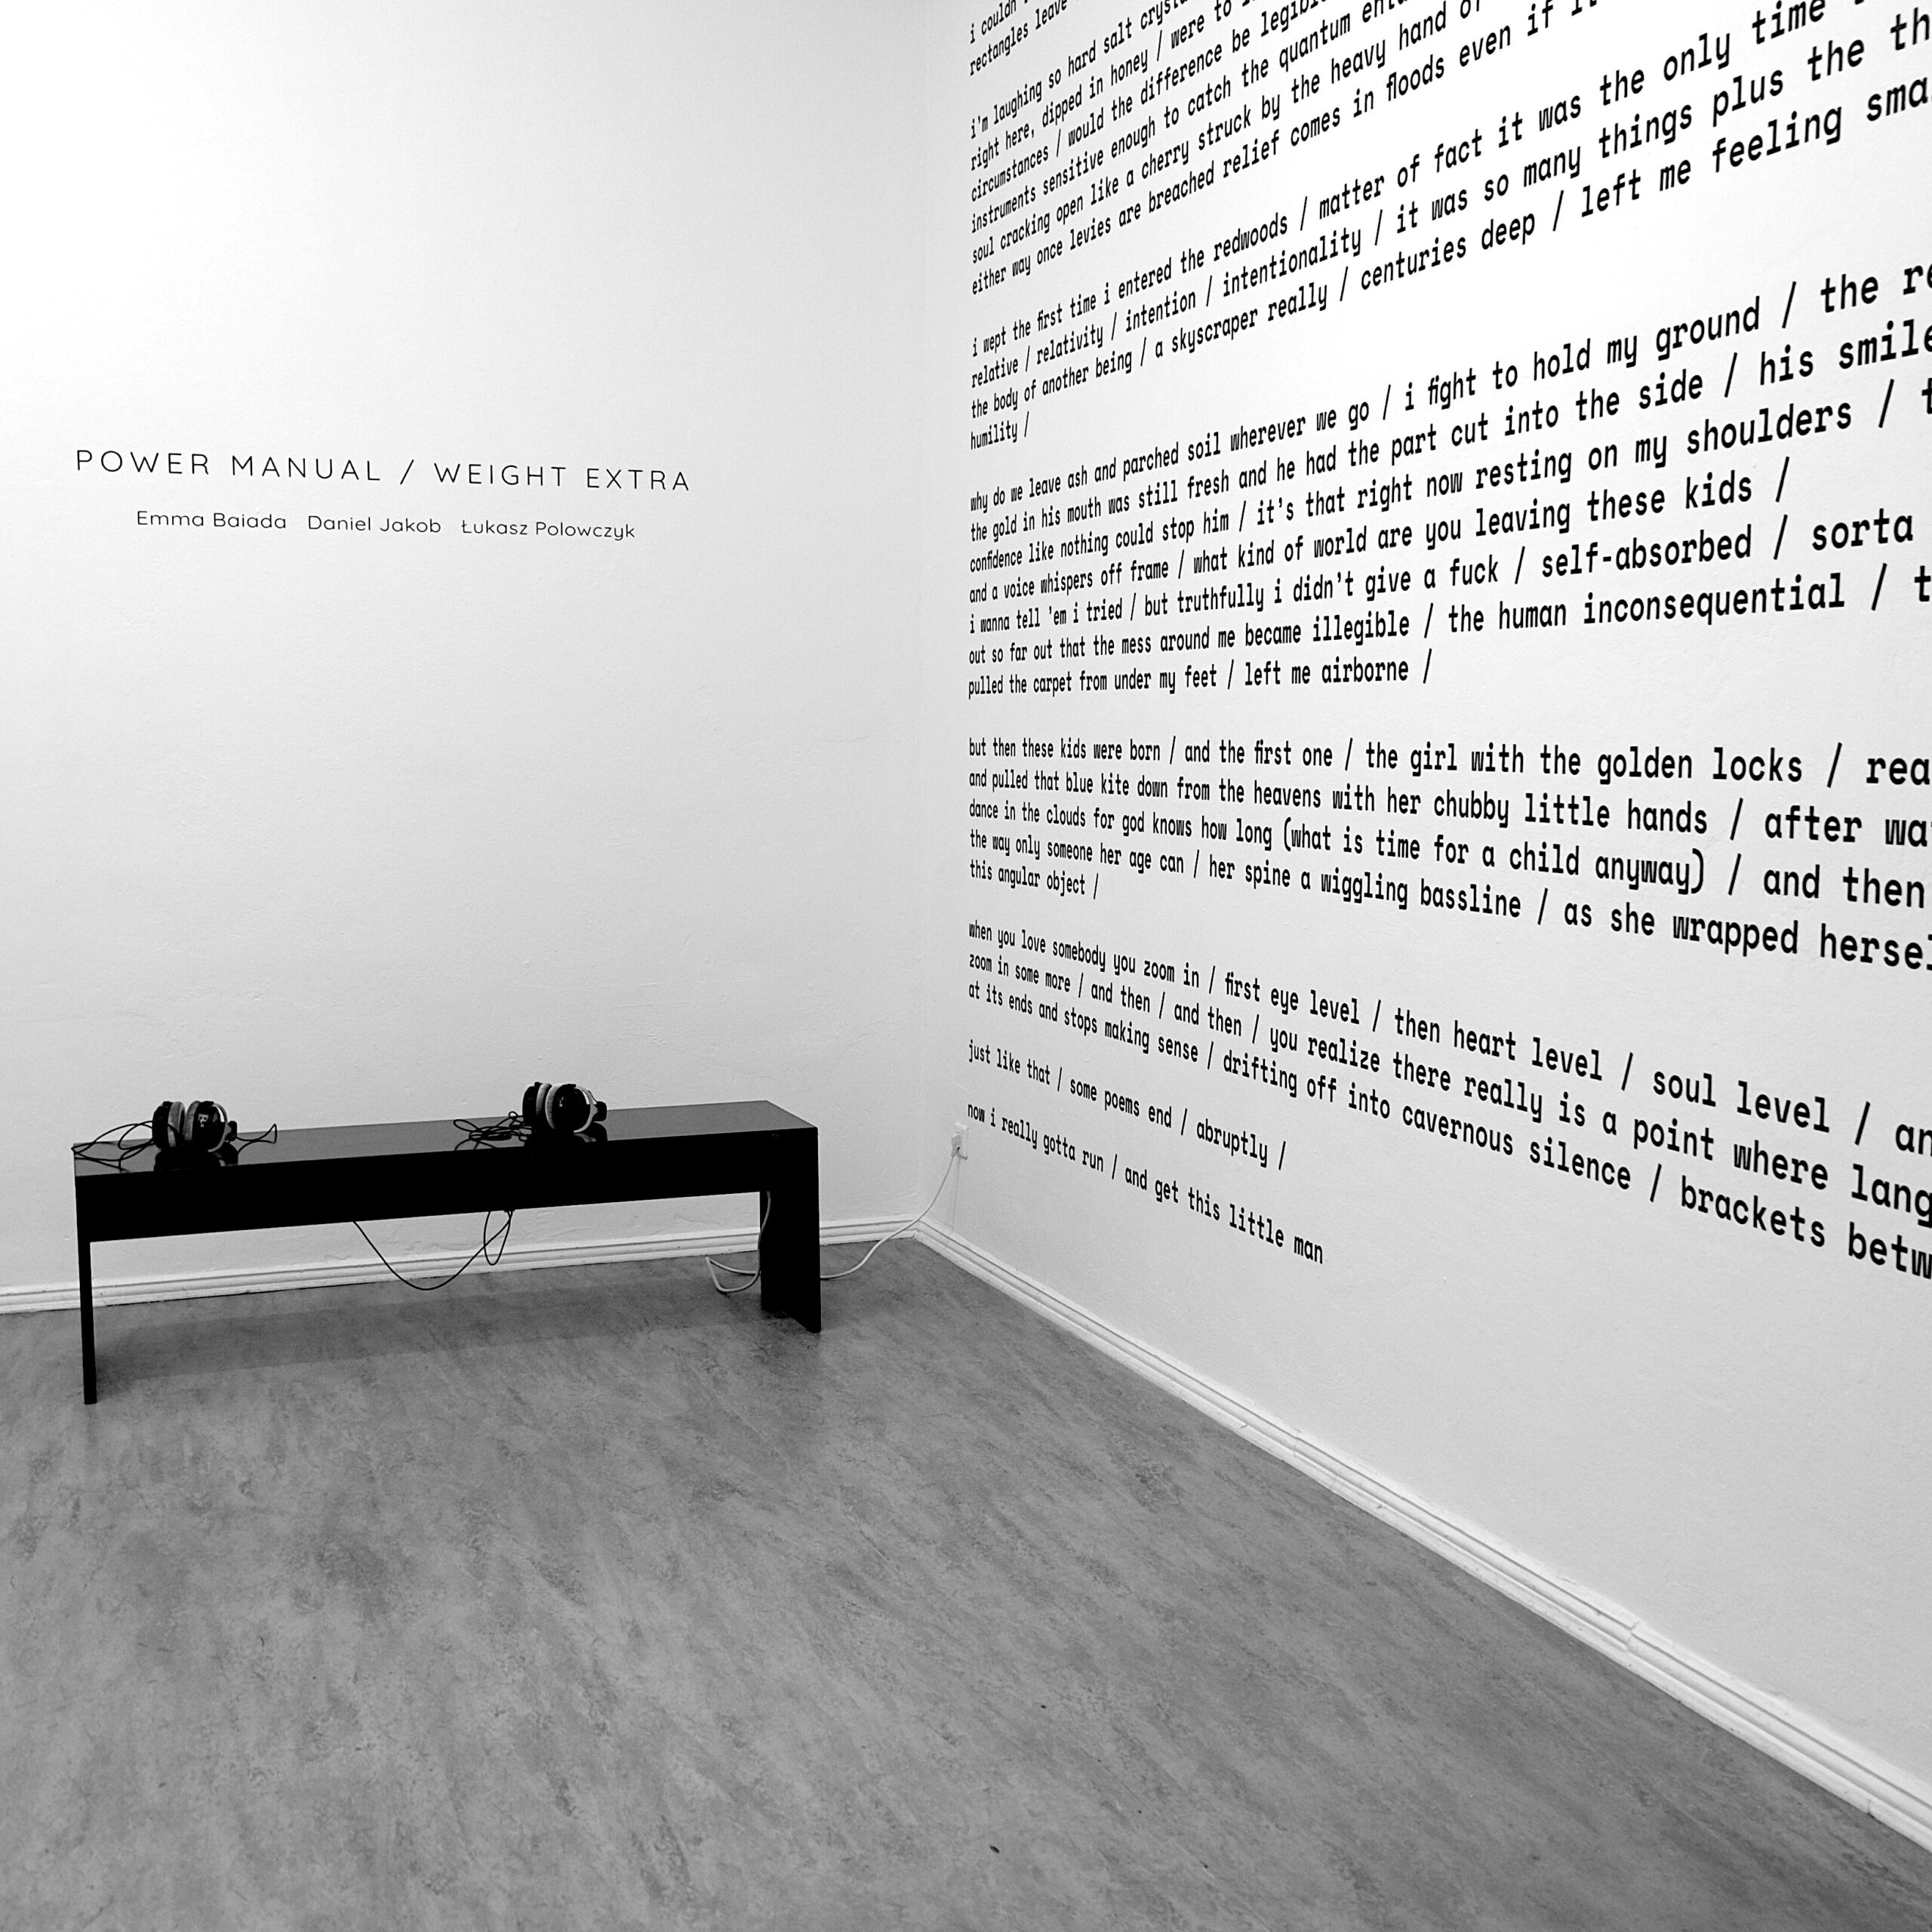 POWER MANUAL / WEIGHT EXTRA
Emma Baiada Daniel Jakob Łukasz Polowczyk
i couldn
rectangles leave
i'm laughing so hard salt
right here, dipped in honey / were to
circumstances / would the difference be
instruments sensitive enough to catch the quantum
soul cracking open like a cherry struck by the heavy hand of
either way once levies are breached relief comes in floods even if
i wept the first time i entered the redwoods / matter of fact it was the only time
relative / relativity / intention / intentionality / it was so many things plus the
the body of another being / a skyscraper really / centuries deep / left me feeling
humility /
why do we leave ash and parched soil wherever we go / i fight to hold my ground / the
the gold in his mouth was still fresh and he had the part cut into the side / his smile
confidence like nothing could stop him / it's that right now resting on my shoulders /
and a voice whispers off frame / what kind of world are you leaving these kids /
i wanna tell 'em i tried / but truthfully i didn't give a fuck / self-absorbed / sorta
out so far out that the mess around me became illegible / the human inconsequential /
pulled the carpet from under my feet / left me airborne /
but then these kids were born / and the first one / the girl with the golden locks /
and pulled that blue kite down from the heavens with her chubby little hands / after
dance in the clouds for god knows how long (what is time for a child anyway) / and then
the way only someone her age can / her spine a wiggling bassline / as she wrapped
this angular object /
when you love somebody you zoom in / first eye level / then heart level / soul level /
zoom in some more / and then / and then / you realize there really is a point where
at its ends and stops making sense / drifting off into cavernous silence / brackets
just like that / some poems end / abruptly /
now i really gotta run / and get this little man